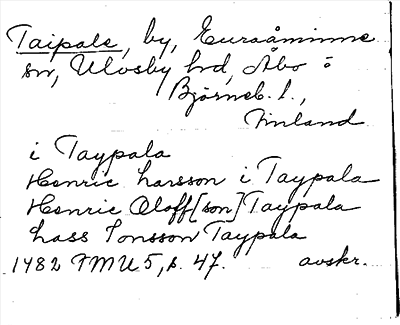 Taipale, by, Euraåminne
sn, Ulvsby hd, Åbo o
Björneb. l.,
Finland
i Taypala
Henric Larsson i Taypala
Henric Oloff[son] Taypala
Lass Jonsson Taypala
1482 FMU 5, s. 47. avskr.